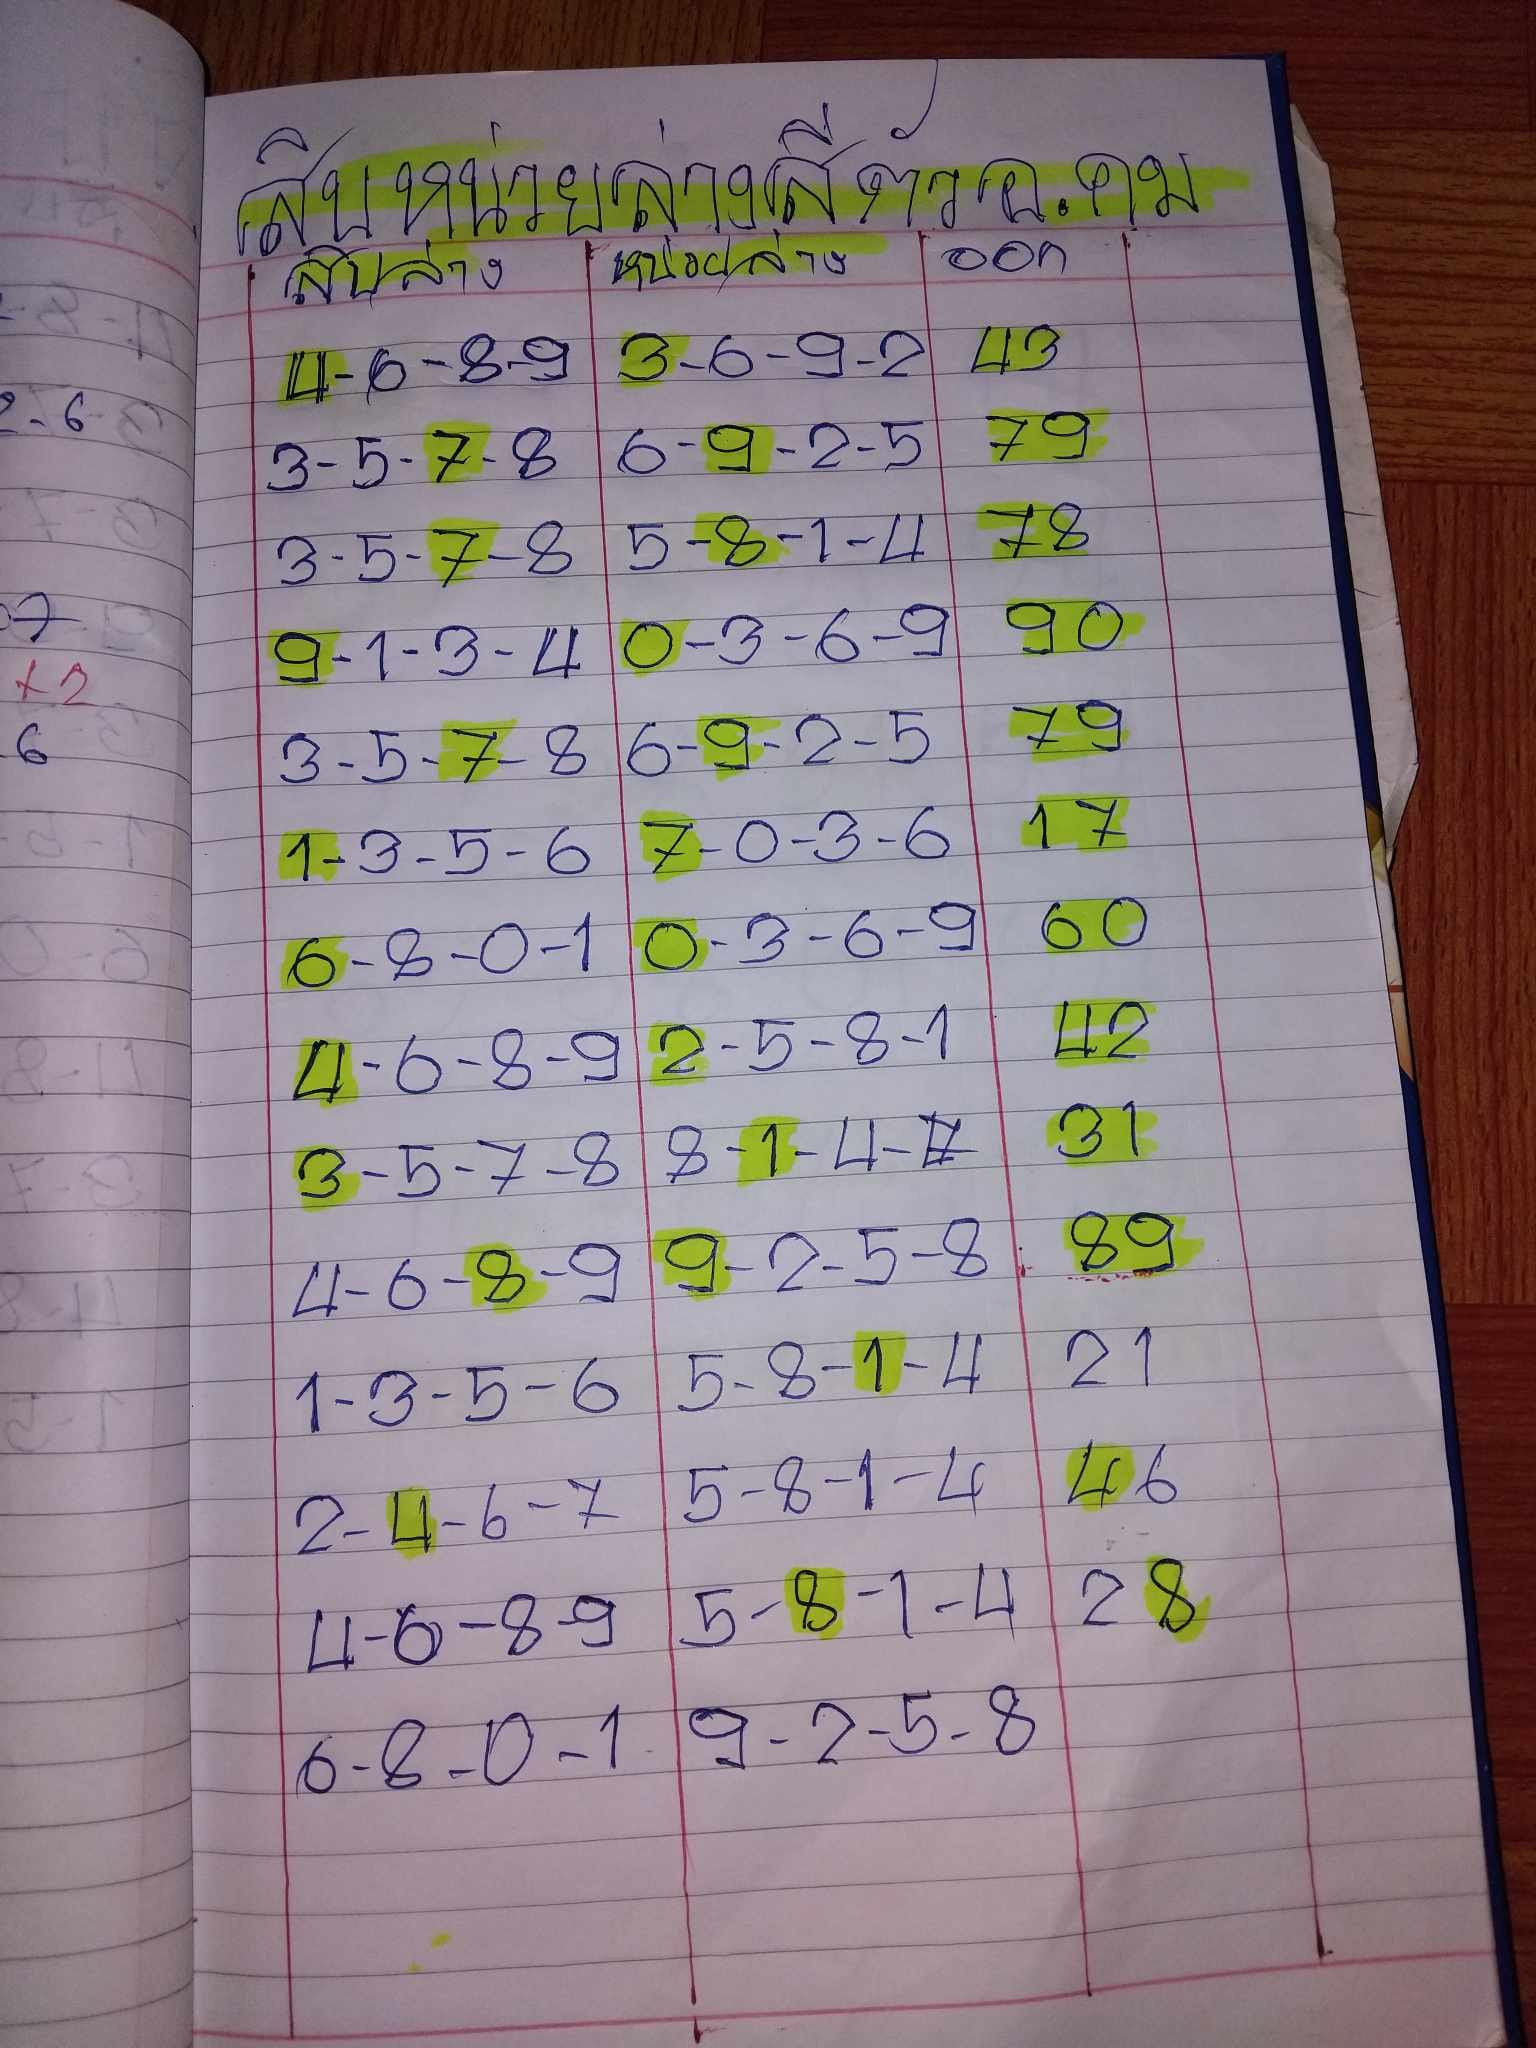 สิบหน่วยล่างสี่ตัว อ.คม
สิบล่าง หน่วยล่าง ออก
4-6-8-9 3-6-9-2 43
3-5-7-8 6-9-2-5 79
3-5-7-8 5-8-1-4 78
9-1-3-4 0-3-6-9 90
3-5-7-8 6-9-2-5 79
1-3-5-6 7-0-3-6 17
6-8-0-1 0-3-6-9 60
4-6-8-9 2-5-8-1 42
3-5-7-8 8-1-4-7 31
4-6-8-9 9-2-5-8 89
1-3-5-6 5-8-1-4 21
2-4-6-7 5-8-1-4 46
4-6-8-9 5-8-1-4 28
6-8-0-1 9-2-5-8
2-6
07
+2
6